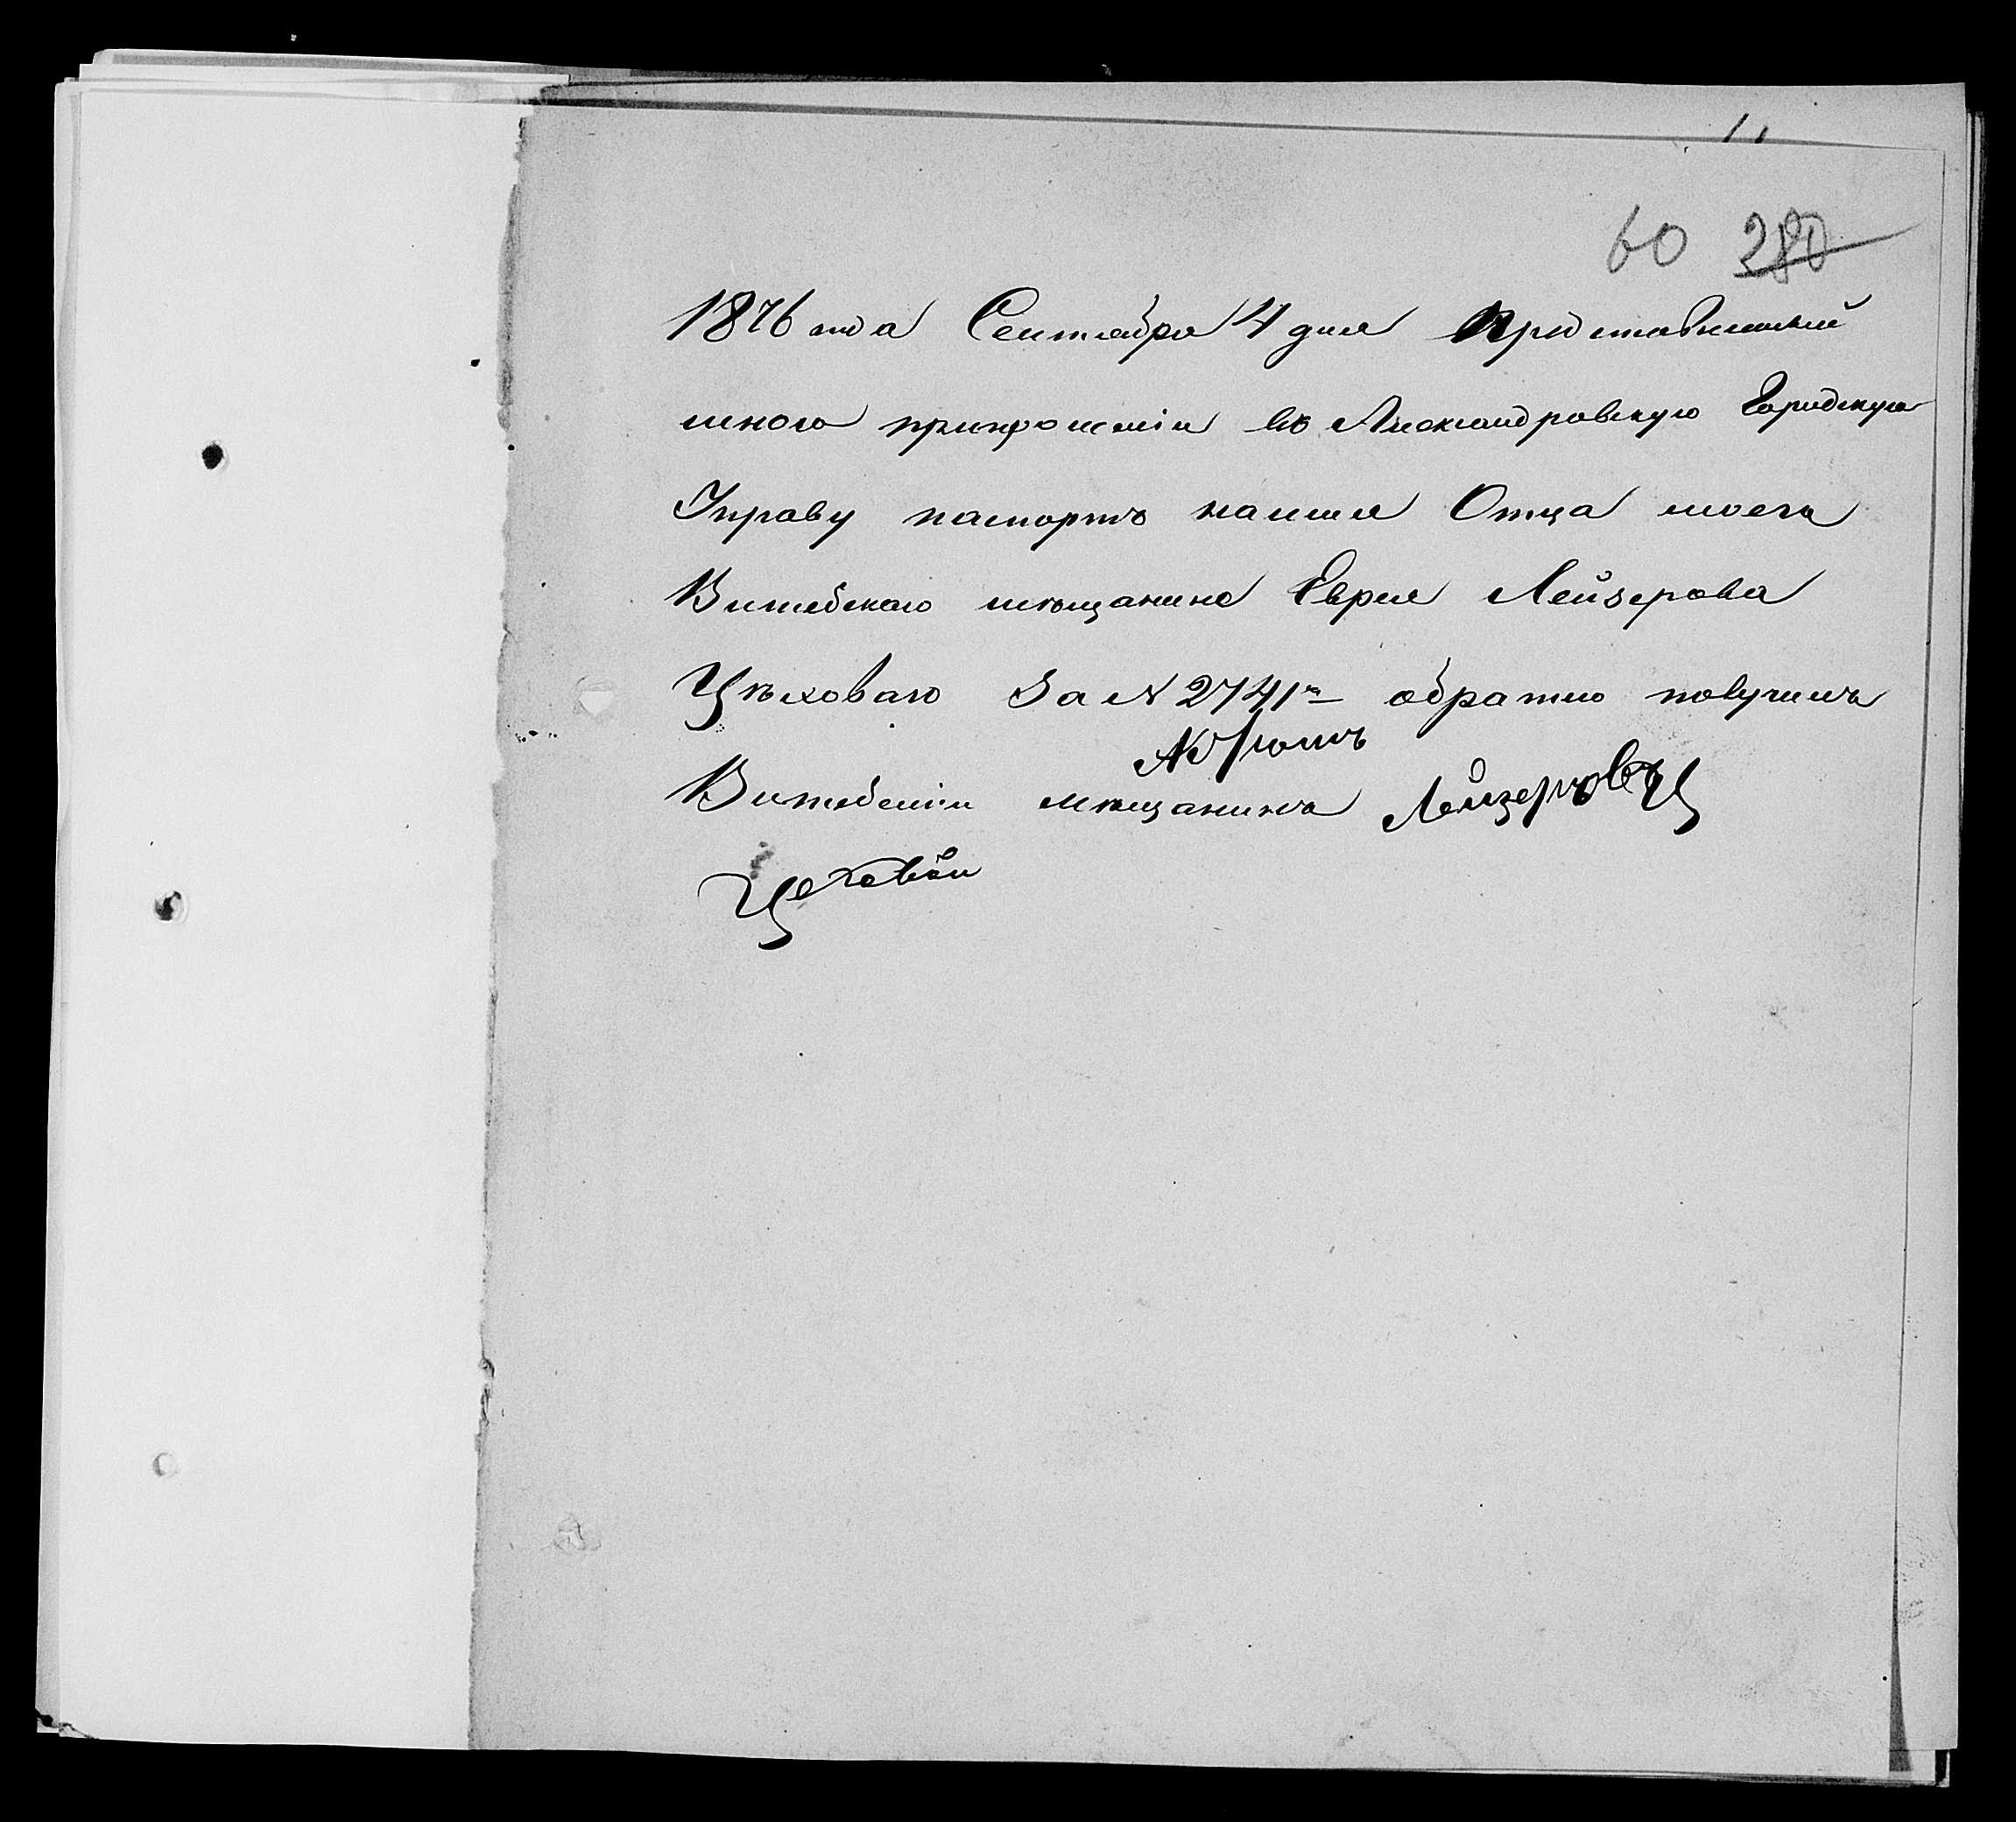 60 280
1876 года Сентября 4 дня Представленный
мною при прошеніи въ Александровскую Городскую
Управу паспортъ на имя Отца моего
Витебскаго мѣщанина Еврея Лейзерова
Цѣховаго За № 2741м обратно получилъ
Витебскій мѣщанинъ Лейзеровъ
Цеховой